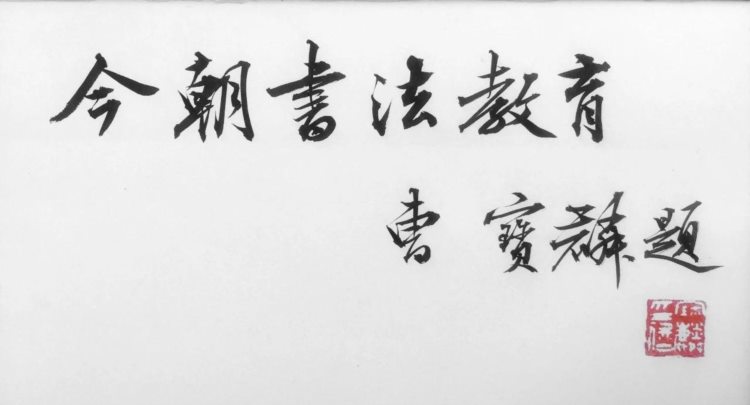 今朝書法教育
曹寶麟題